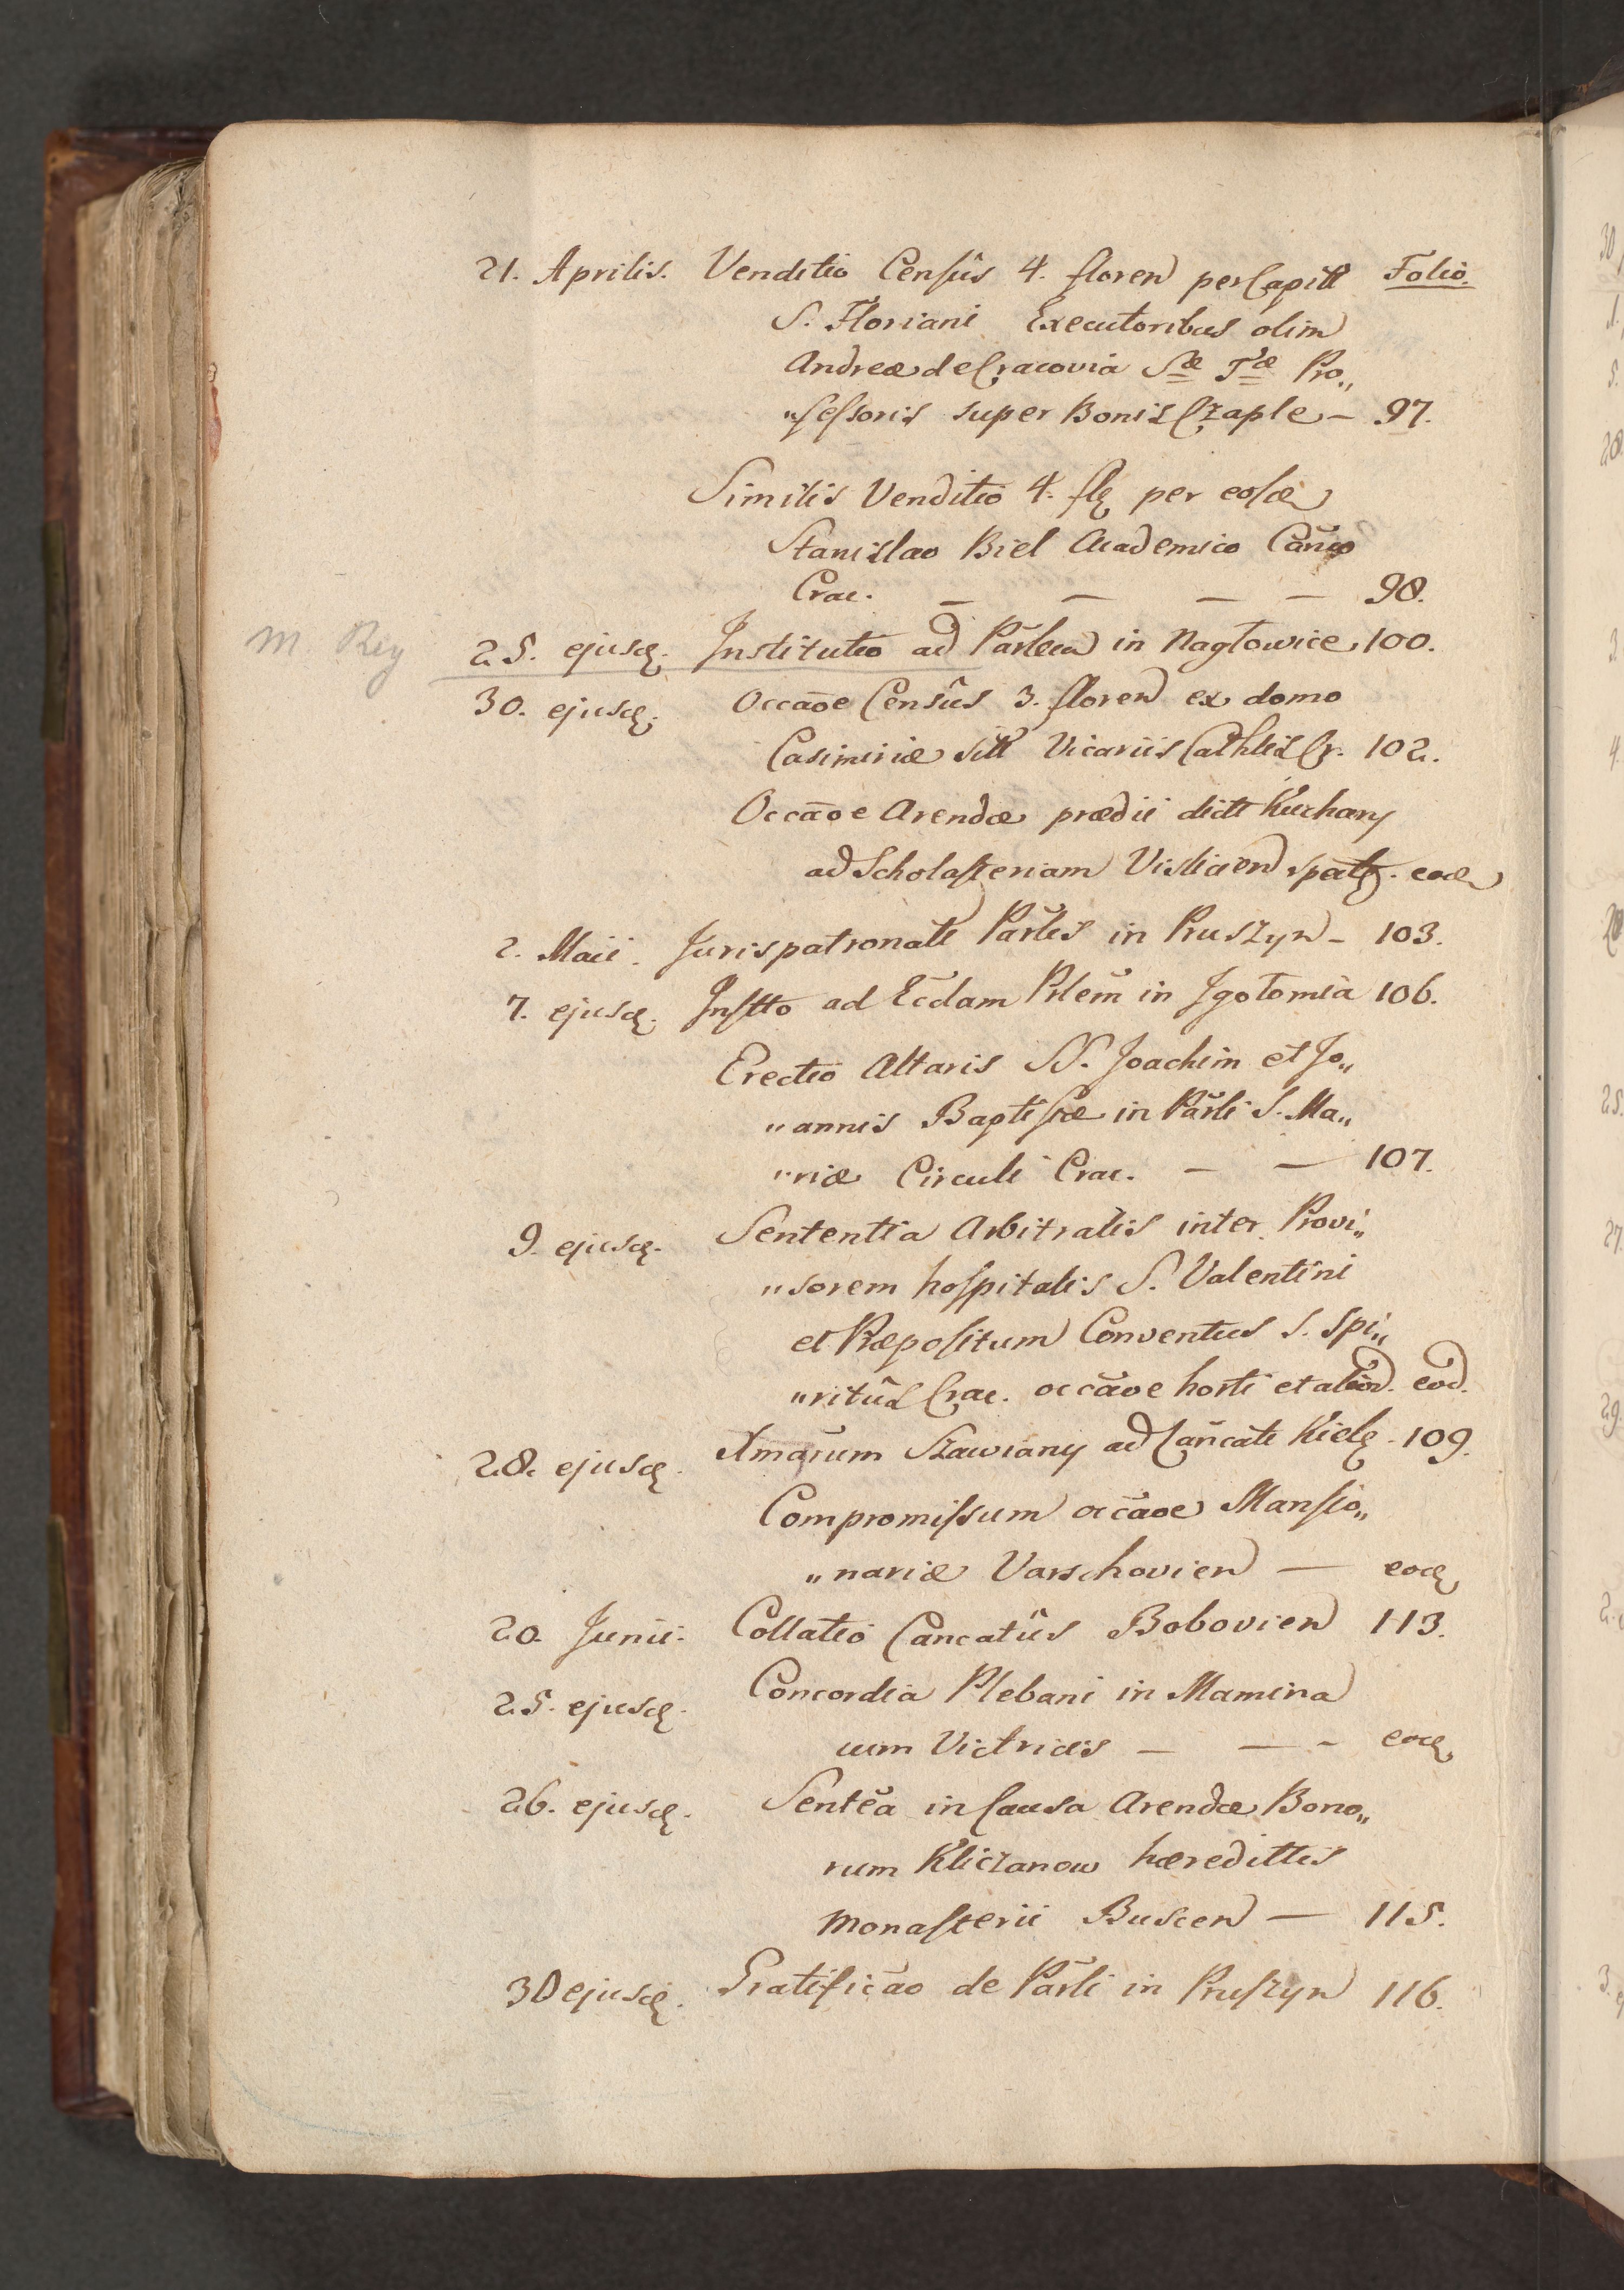 21. Aprilis. Venditio Censûs 4. floren per Capitl Folio.
S. Floriani Executoribus olim
Andreæ de Cracovia Sæ Tæ Pro„
„fessoris super Bonis Czaple – 97.
Similis Venditio 4. flę per eosdę
Stanislao Biel Academico Cañco
Crac. — — — — 98.
M. Rey 25. ejusdę. Institutio ad Părlem in Nagłowice. 100.
30. ejusdę. Occāoe Censûs 3. floren ex domo
Casimiriæ sitt Vicariis Cathlis Cr. 102.
Occāoe Arendæ prædii dictt Kuchary
ad Scholasteriam Vislicien spectt. eodę
2. Maii. Jurispatronatt Părlis in Pruszyn – 103.
7. ejusdę. Instto ad Ecclam Prlem in Jgołomia 106.
Erectio Altaris SS. Joachim et Jo„
„annis Baptistæ in Părli S. Ma„
„riæ Circuli Crac. — — 107.
9. ejusdę. Sententia Arbitralis inter Provi„
„sorem hospitalis S. Valentini
et Præpositum Conventus S. Spi„
„ritûs Crac. occāoe horti et aliod. eod.
28. ejusdę. Xmarum Szawrany ad Cañcatt Kielę – 109.
Compromissum occāoe Mansio„
„nariæ Varschovien — eodę
20. Junii. Collatio Cancatûs Bobovien 113.
25. ejusdę. Concordia Plebani in Mamina
cum Victricis — — – eodę
26. ejusdę. Sentĕa in Causa Arendæ Bono„
rum Kliczanow hæredittis
Monasterii Buscen — 115.
30 ejusdę. Gratificāo de Părli in Pruszyn 116.